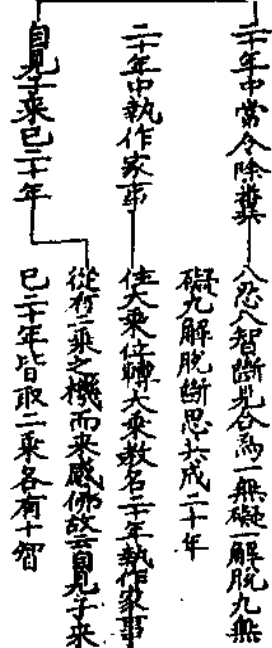 二十年中當令除糞
八忍八智斷見合為一無礙一解脫九無
礙九解脫斷思共成二十年
二十年中執作家事
住大乘位轉大乘教名二十年執作家事
自見子來已二十年
從有二乘之機而来感佛故云自見子来
已二十年皆取二乘各有十智